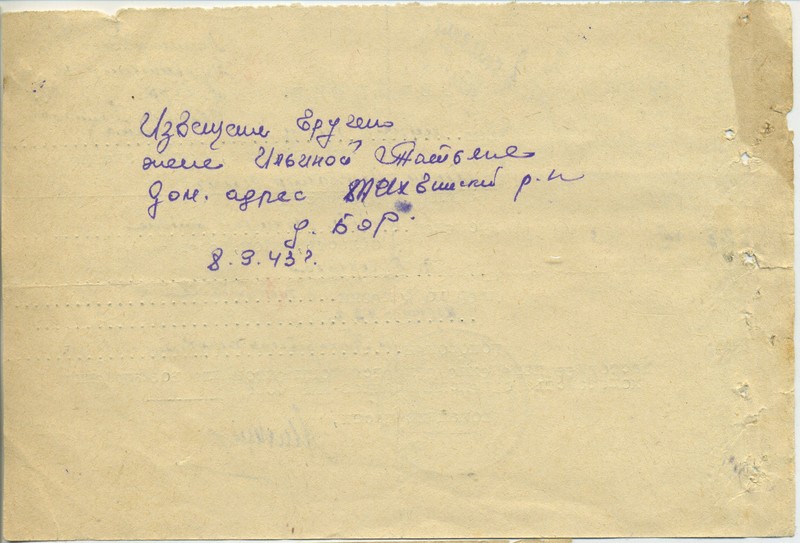 Извещение вручено
жене Ильиной Татьяне
Дом. адрес Тихвинский р-н
д. Бор.
8.9.43г.